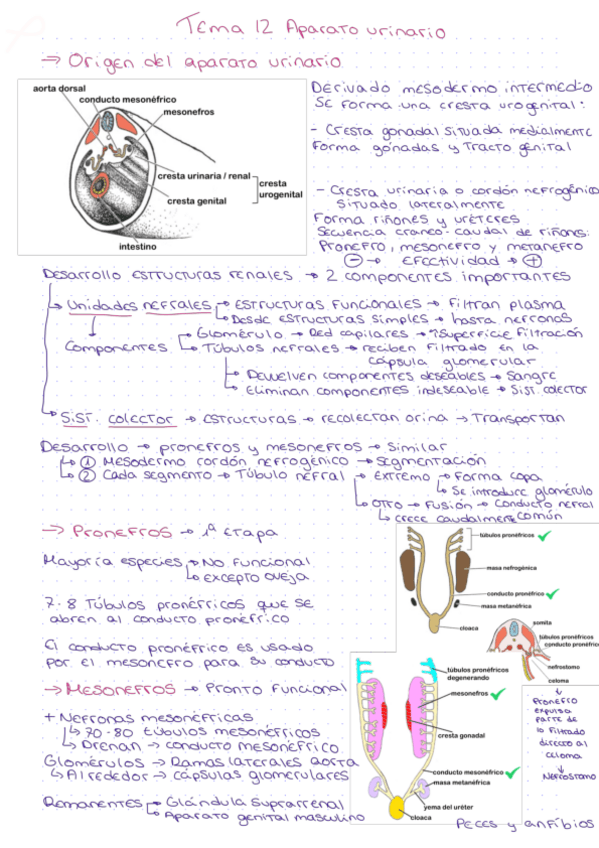 Tema 12 Aparato urinario
→ Origen del aparato urinario
aorta dorsal
conducto mesonéfrico
mesonefros
cresta urinaria / renal
cresta urogenital
cresta genital
intestino
Derivado mesodermo intermedio
Se forma una cresta urogenital:
- Cresta gonadal situada medialmente
Forma gónadas y tracto genital
- Cresta urinaria o cordón nefrogénico
Situado lateralmente
Forma riñones y uréteres
Secuencia craneo-caudal de riñones:
Pronefro, mesonefro y metanefro
⊖ → Efectividad → ⊕
Desarrollo estructuras renales → 2 componentes importantes
↳ Unidades nefrales → Estructuras funcionales → Filtran plasma
↳ Desde estructuras simples → hasta nefronas
Componentes
→ Glomérulo → Red capilares → ↑Superficie Filtración
↳ Túbulos nefrales → reciben Filtrado en la
cápsula glomerular
→ Devuelven componentes deseables → Sangre
↳ Eliminan componentes indeseable → Sist colector
↳ Sist. colector → estructuras → recolectan orina → Transportan
Desarrollo → pronefros y mesonefros → Similar
↳ ① Mesodermo cordón nefrogénico → Segmentación
↳ ② Cada segmento → Túbulo nefral → Extremo → Forma copa
↳ Se introduce glomérulo
↳ Otro → Fusión → Conducto nefral
común
↳ crece caudalmente
→ Pronefros → 1ª etapa
Mayoría especies → No funcional
↳ excepto oveja
7-8 Túbulos pronéfricos que se
abren al conducto pronéfrico
El conducto pronéfrico es usado
por el mesonefro para su conducto
túbulos pronéfricos ✓
masa nefrogénica
conducto pronéfrico ✓
masa metanéfrica
cloaca
somita
túbulos pronéfricos
conducto pronéfrico
nefrostomo
celoma
↓
Pronefro
expulsa
parte de
lo filtrado
directo al
celoma
↓
Nefrostomo
→ Mesonefros → Pronto Funcional
+ Nefronas mesonéfricas
↳ 70-80 túbulos mesonéfricos
↳ Drenan → conducto mesonéfrico
Glomérulos → Ramas laterales aorta
↳ Alrededor → cápsulas glomerulares
Remanentes → Glándula Suprarrenal
↳ Aparato genital masculino
túbulos pronéfricos
degenerando
mesonefros ✓
cresta gonadal
conducto mesonéfrico ✓
masa metanéfrica
yema del uréter
cloaca
Peces y anfibios